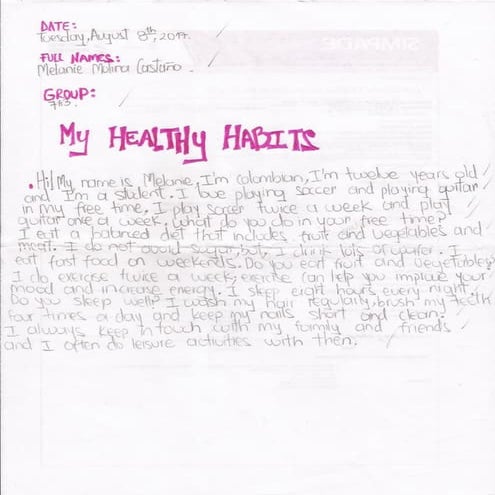 DATE:
Tuesday, August 8th, 2017.
FULL NAMES:
Melanie Molina Castaño.
GROUP:
7°3
My HEALTHy HABITS
. Hi! My name is Melanie, I'm colombian, I'm twelve years old
and I'm a student. I love playing soccer and playing guitar
in my free time. I play soccer twice a week and play
guitar one a week. What do you do in your free time?
I eat a balanced diet that includes fruit and vegetables and
meat. I do not avoid sugar, but, I drink lots of water. I
eat fast food on weekends. Do you eat fruit and vegetables?
I do exercise twice a week, exercise can help you improve your
mood and increase energy. I sleep eight hours every night.
Do you sleep well? I wash my hair regularly, brush my teeth
four times a day and keep my nails short and clean.
I always keep in touch with my family and friends
and I often do leisure activities with then.
SIMPADE